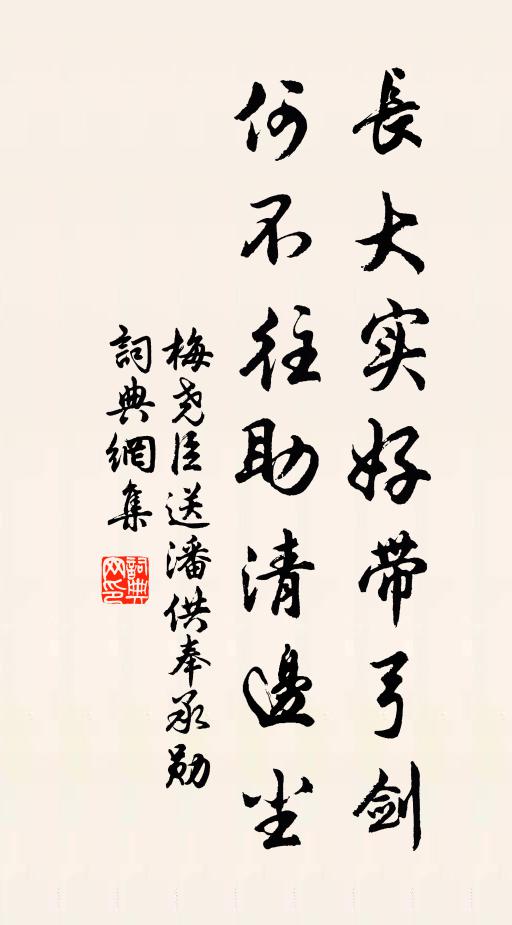 長大实好帶弓剑
何不往助清邊尘
梅尧臣送潘供奉承勋
詞典網集
詞典
网印